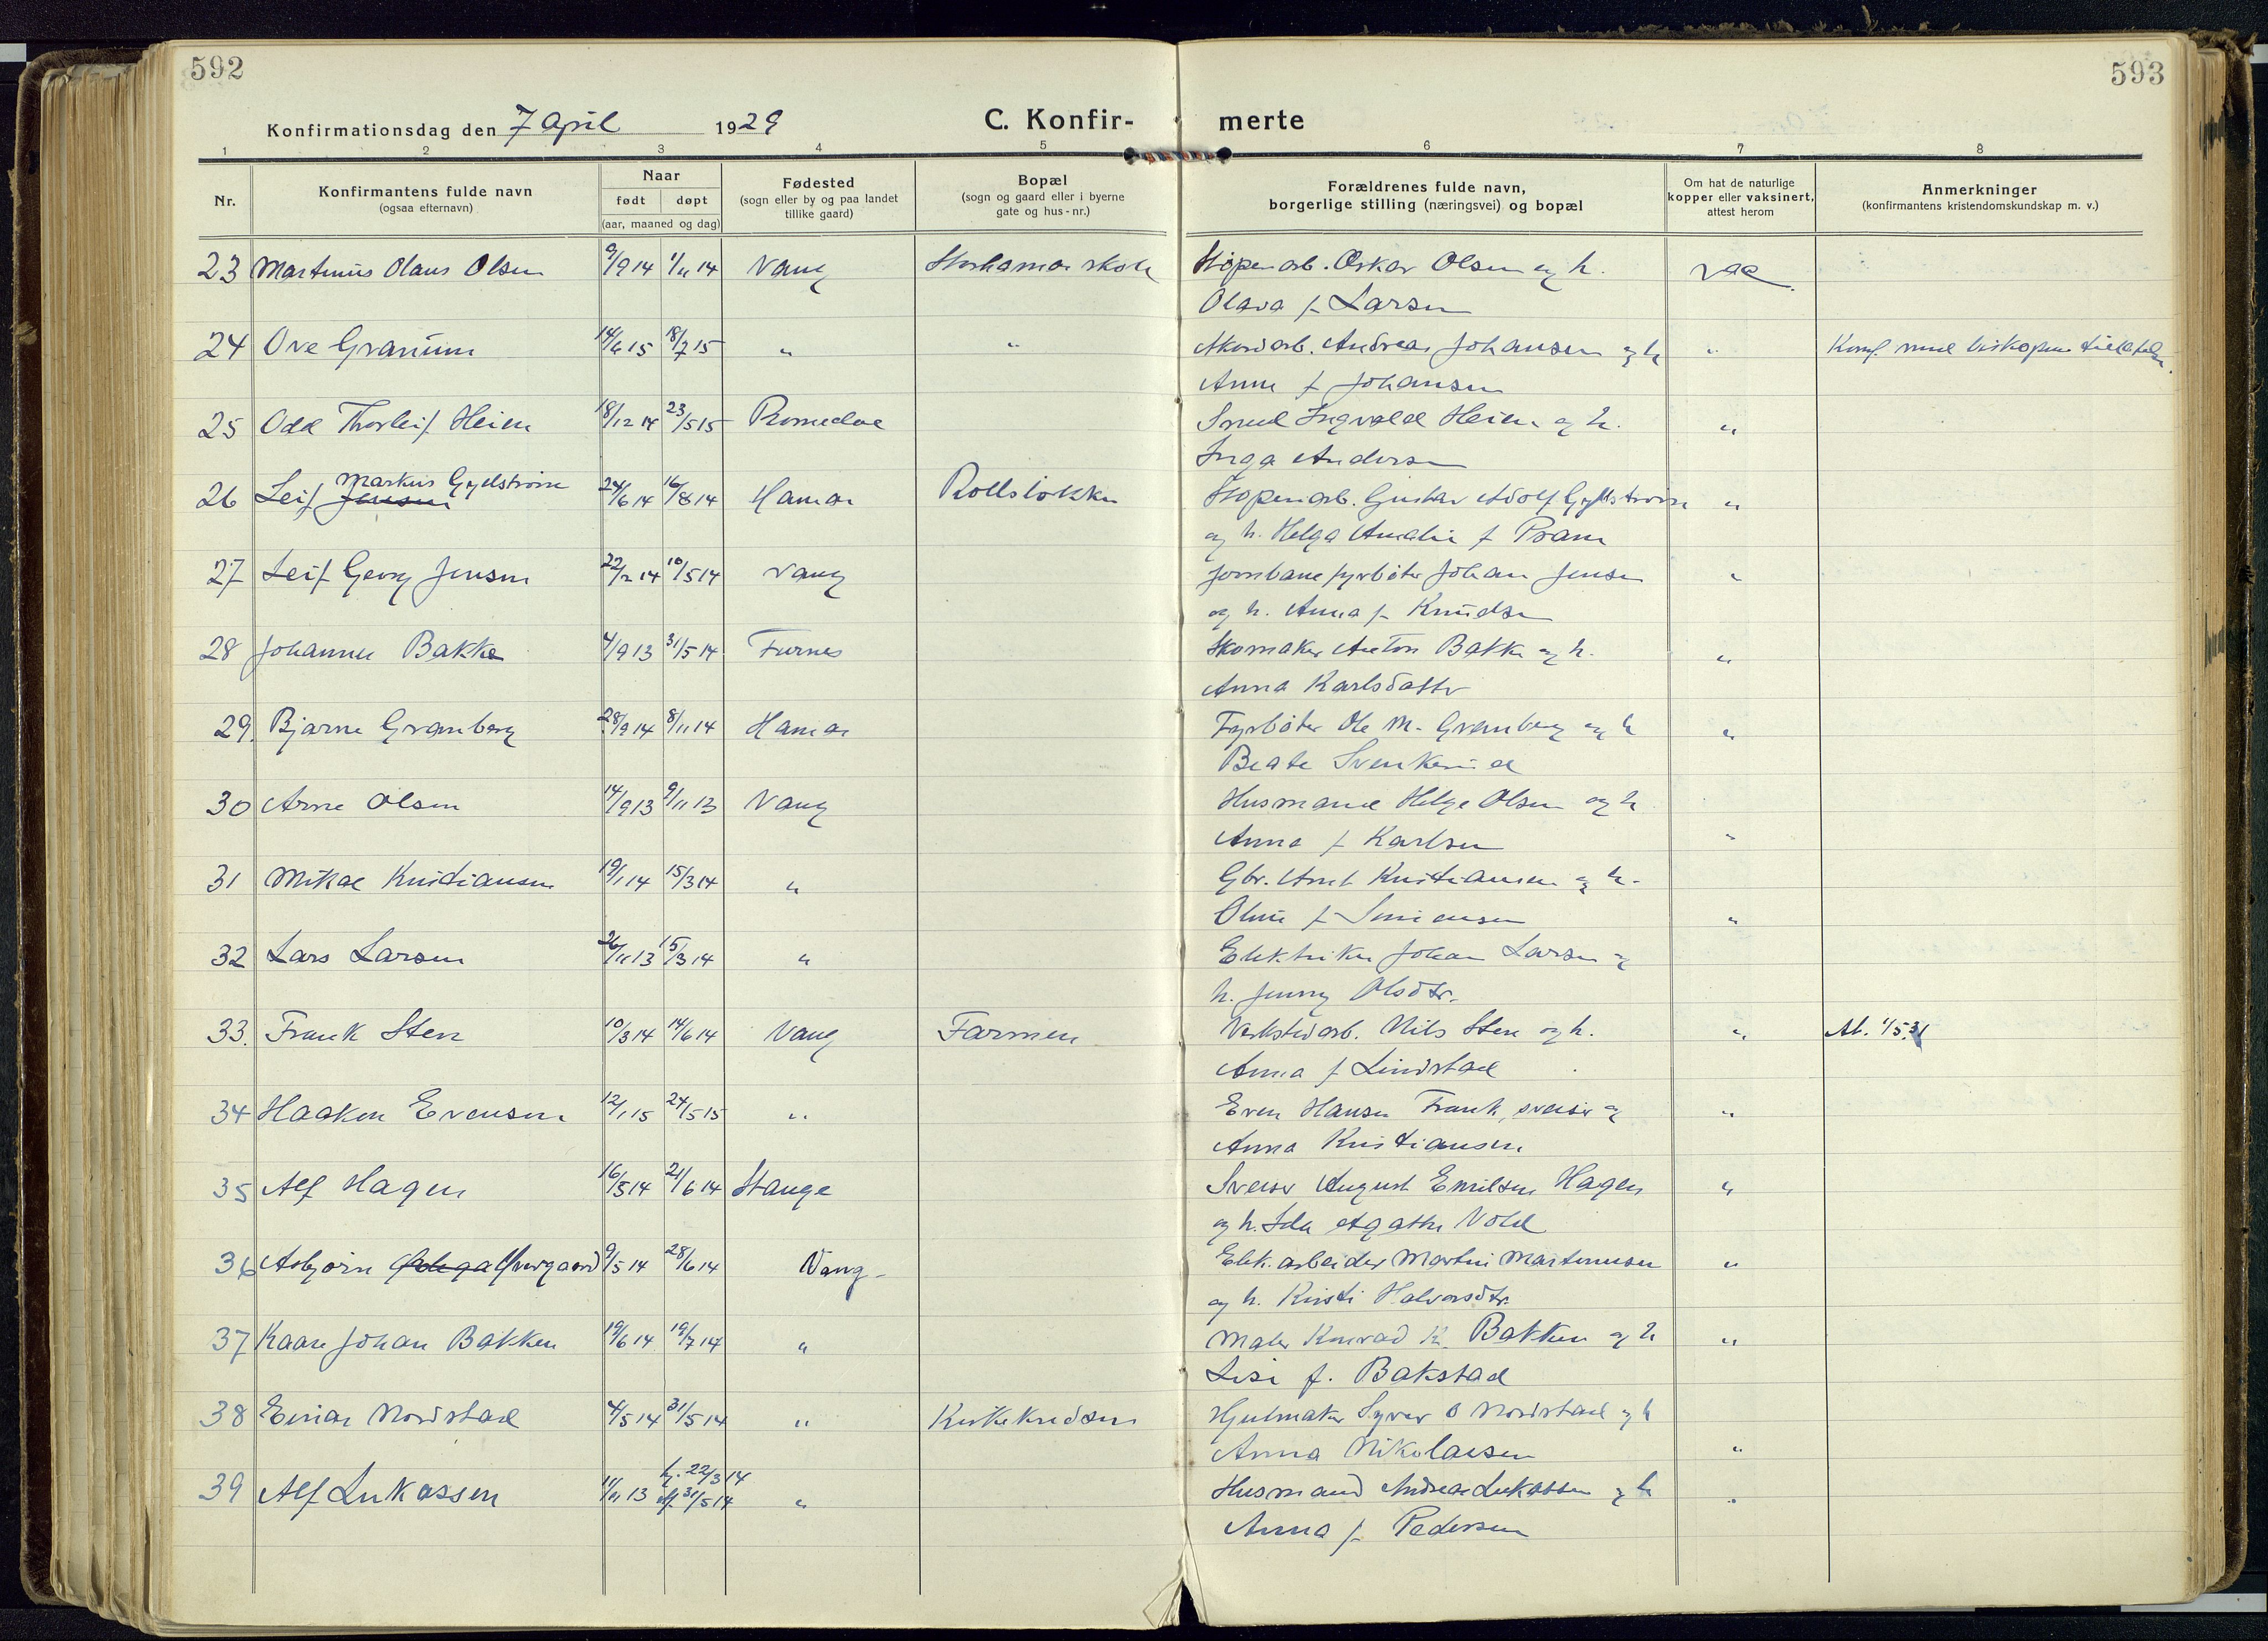 592
593
Konfirmationsdag den 7 April 1929
C. Konfir- merte
1 2 3 4 5 6 7 8
Nr.
Konfirmantens fulde navn
(ogsaa efternavn)
Naar
født døpt
(aar, maaned og dag)
Fødested
(sogn eller by og paa landet
tillike gaard)
Bopæl
(sogn og gaard eller i byerne
gate og hus-nr.)
Forældrenes fulde navn,
borgerlige stilling (næringsvei) og bopæl
Om hat de naturlige
kopper eller vaksinert,
attest herom
Anmerkninger
(konfirmantens kristendomskundskap m. v.)
23 Martinius Olaus Olsen 9/9 14 1/11 14 Vang Storhamar skole Støperiarb. Oskar Olsen og h. vac.
Olava f. Larsen
24 Ove Granum 14/6 15 18/7 15 " " Akordarb. Andreas Johansen og h " Konf. med biskopens tillatelse.
Anne f Johansen
25 Odd Thorleif Heien 18/12 14 23/5 15 Romedal Smed Ingvald Heien og h. "
Inga Andersen
26 Leif Jensen Markus Gyllstrøm 24/6 14 16/8 14 Hamar Rollsløkken Støperiarb. Gustav Adolf Gyllstrøm "
og h. Helga Amalie f Pram
27 Leif Georg Jensen 22/2 14 10/5 14 Vang Jernbanefyrbøter Johan Jensen "
og h. Anna f. Knudsen
28 Johannes Bakke 4/9 13 31/5 14 Furnes Skomaker Anton Bakke og h. "
Anna Karlsdatter
29. Bjarne Granberg 28/9 14 8/11 14 Hamar Fyrbøter Ole M. Granberg og h "
Beate Svenkerud
30 Arne Olsen 14/9 13 9/11 13 Vang Husmand Helge Olsen og h
Anna f Karlsen "
31 Mikal Kristiansen 19/1 14 15/3 14 " Gbr. Arnt Kristiansen og h.
Oline f Simensen "
32 Lars Larsen 26/11 13 15/3 14 " Elektriker Johan Larsen og
h. Jenny Olsdtr.
33. Frank Sten 10/3 14 14/6 14 Vang Farmen Verkstedarb. Nils Sten og h. " At. 1/5.31
Anna f Lindstad
34 Haakon Evensen 12/1 15 24/5 15 " Even Hansen Frank, sveiser og "
Anna Kristiansen
35 Alf Hagen 16/5 14 21/6 14 Stange Sveiser August Emilsen Hagen "
og h. Ida Agathe Vold
36 Asbjørn 9/5 14 28/6 14 Vang Elek. arbeider Martin Martinusen "
og h. Kristi Halvorsdtr.
37 Kaare Johan Bakken 19/6 14 19/7 14 " Maler Konrad K. Bakken og h "
Lisi f. Bakstad
38 Einar Nordstad 4/5 14 31/5 14 " Hjulmaker Syver O Nordstad og h
Anna Nikolaisen "
39 Alf Lukassen 11/11 13 hj. 22/3 14 " Husmand Andreas Lukassen og h "
st. 31/5 14
Anna f. Pedersen